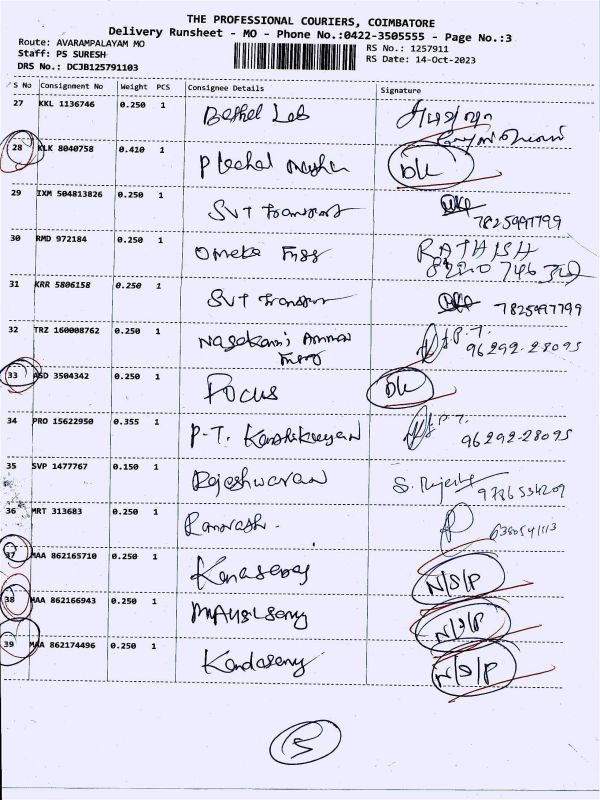 THE PROFESSIONAL COURIERS, COIMBATORE
Delivery Runsheet - MO - Phone No.:0422-3505555 - Page No.:3
Route: AVARAMPALAYAM MO
Staff: PS SURESH
DRS No.: DCJB125791103
RS No.: 1257911
RS Date: 14-Oct-2023
S No Consignment No Weight PCS Consignee Details Signature
27 KKL 1136746 0.250 1 Bethel Lab
28 KLK 8040758 0.410 1 DL
29 IXM 504813826 0.250 1 SVT Transport 7825997799
30 RMD 972184 0.250 1 Omeka RATHISH
31 KRR 5806158 0.250 1 SVT Transport 7825997799
32 TRZ 160008762 0.250 1 P.T. 96292-28095
33 ASD 3504342 0.250 1 Focus DL
34 PRO 15622950 0.355 1 P.T. Karthikeyan P.T. 96292-28095
35 SVP 1477767 0.150 1 Rajeshwaran S. Rajesh
36 MRT 313683 0.250 1
37 MAA 862165710 0.250 1 N/S/P
38 MAA 862166943 0.250 1 N/S/P
39 MAA 862174496 0.250 1 Kandasamy N/S/P
5